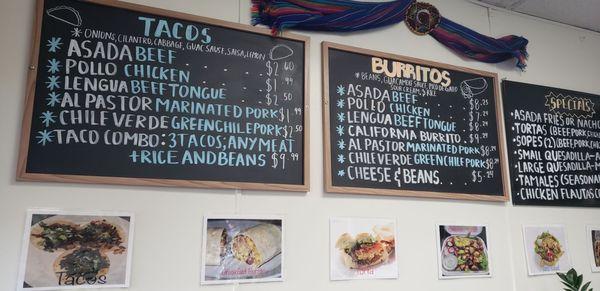 TACOS
* ONIONS, CILANTRO, CABBAGE, GUAC SAUCE, SALSA, LEMON
* ASADA BEEF . . . $2.40
* POLLO CHICKEN . . . $1.99
* LENGUA BEEF TONGUE $2.50
* AL PASTOR MARINATED PORK $1.99
* CHILE VERDE GREEN CHILE PORK $2.50
* TACO COMBO: 3 TACOS; ANY MEAT
+ RICE AND BEANS . . . $9.99
BURRITOS
* BEANS, GUACAMOLE SAUCE, PICO DE GALLO,
SOUR CREAM & RICE
* ASADA BEEF
* POLLO CHICKEN
* LENGUA BEEF TONGUE
* CALIFORNIA BURRITO
* AL PASTOR MARINATED PORK
* CHILE VERDE GREEN CHILE PORK
* CHEESE & BEANS
SPECIALS
* ASADA FRIES OR NACHO
* TORTAS (BEEF, PORK
* SOPES (2) (BEEF, PORK, CHICK
* SMALL QUESADILLA
* LARGE QUESADILLA
* TAMALES (SEASONA
* CHICKEN FLAUTAS
TACOS